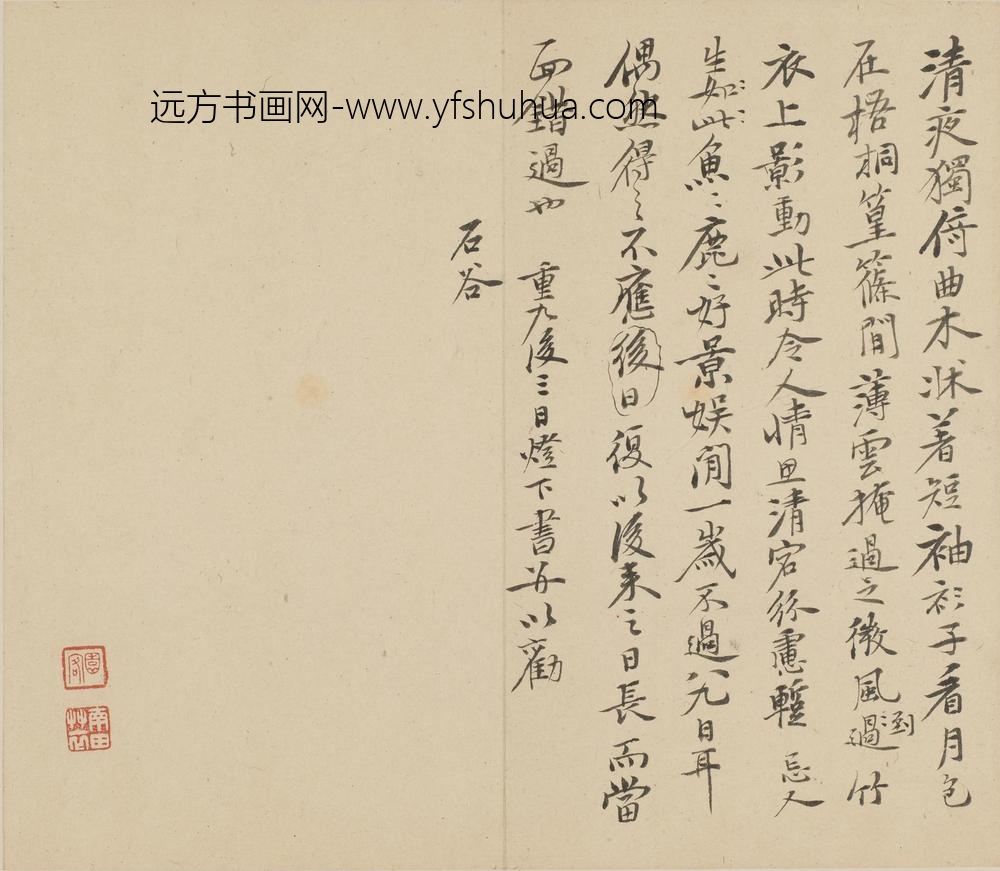 清夜獨倚曲木牀著短袖衫子看月色
在梧桐篁篠間薄雲掩過之微風過到竹
衣上影動此時令人情思清宕紛慮蹔忘人
生如此魚魚鹿鹿好景娛閒一歲不過八九日耳
偶然得之不應後日復以後来之日長而當
面錯過也 重九後三日燈下書并以勸
石谷
远方书画网-www.yfshuhua.com
園客
南田草衣